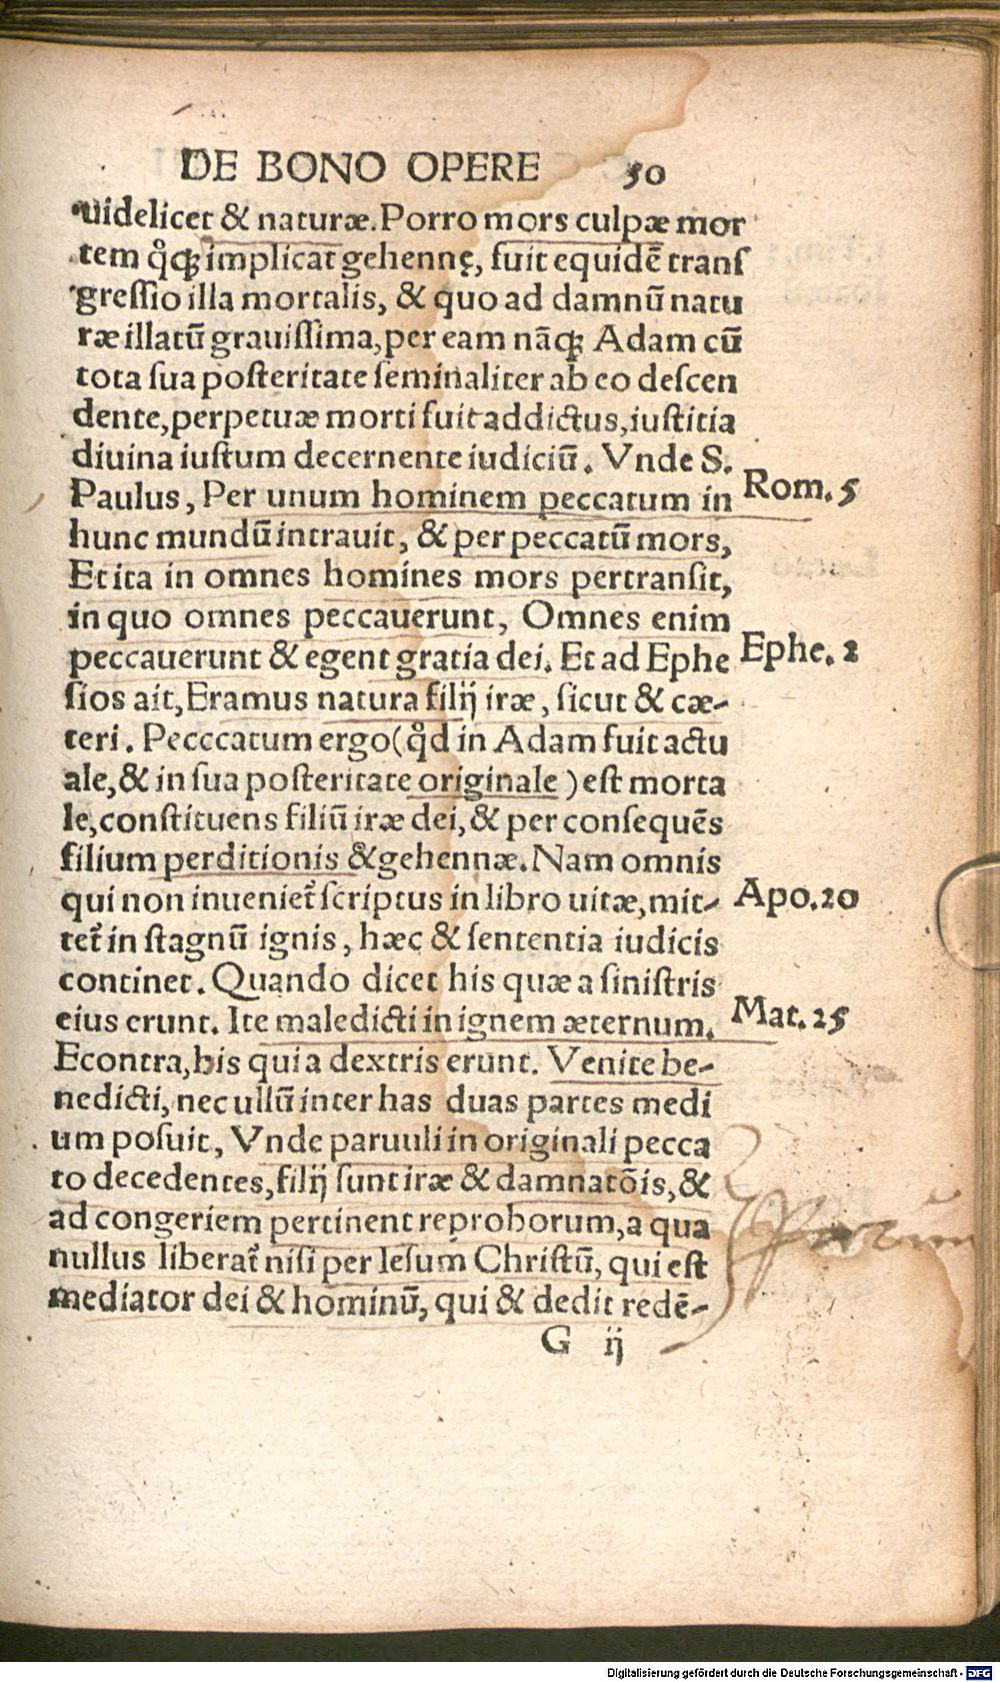 DE BONO OPERE 50
uidelicet & naturæ. Porro mors culpæ mor
tem q̊q̃ꝫ implicat gehennę, fuit equidẽ tranſ
greſſio illa mortalis, & quo ad damnũ natu
ræ illatũ grauiſſima, per eam nãq̃ꝫ Adam cũ
tota ſua poſteritate ſeminaliter ab eo deſcen
dente, perpetuæ morti fuit addictus, iuſticia
diuina iuſtum decernente iudiciũ. Vnde S.
Paulus, Per unum hominem peccatum in Rom. 5
hunc mundũ intrauit, & per peccatũ mors,
Et ita in omnes homines mors pertranſit,
in quo omnes peccauerunt, Omnes enim
peccauerunt & egent gratia dei. Et ad Ephe Ephe. 2
ſios ait, Eramus natura filij iræ, ſicut & cæ-
teri. Pecccatum ergo (q̊d in Adam fuit actu
ale, & in ſua poſteritate originale) eſt morta
le, conſtituens filiũ iræ dei, & per conſequẽs
filium perditionis & gehennæ. Nam omnis
qui non inueniet᷑ ſcriptus in libro uitæ, mit- Apo. 20
tet᷑ in ſtagnũ ignis, hæc & ſententia iudicis
continet. Quando dicet his quæ a ſiniſtris
eius erunt. Ite maledicti in ignem æternum. Mat. 25
Econtra, his qui a dextris erunt. Venite be-
nedicti, nec ullũ inter has duas partes medi
um poſuit, Vnde paruuli in originali pecca
to decedentes, filij ſunt iræ & damnatõis, &
ad congeriem pertinent reproborum, a qua
nullus liberat᷑ niſi per Ieſum Chriſtũ, qui eſt
mediator dei & hominũ, qui & dedit redẽ-
G ij
Digitalisierung gefördert durch die Deutsche Forschungsgemeinschaft - DFG